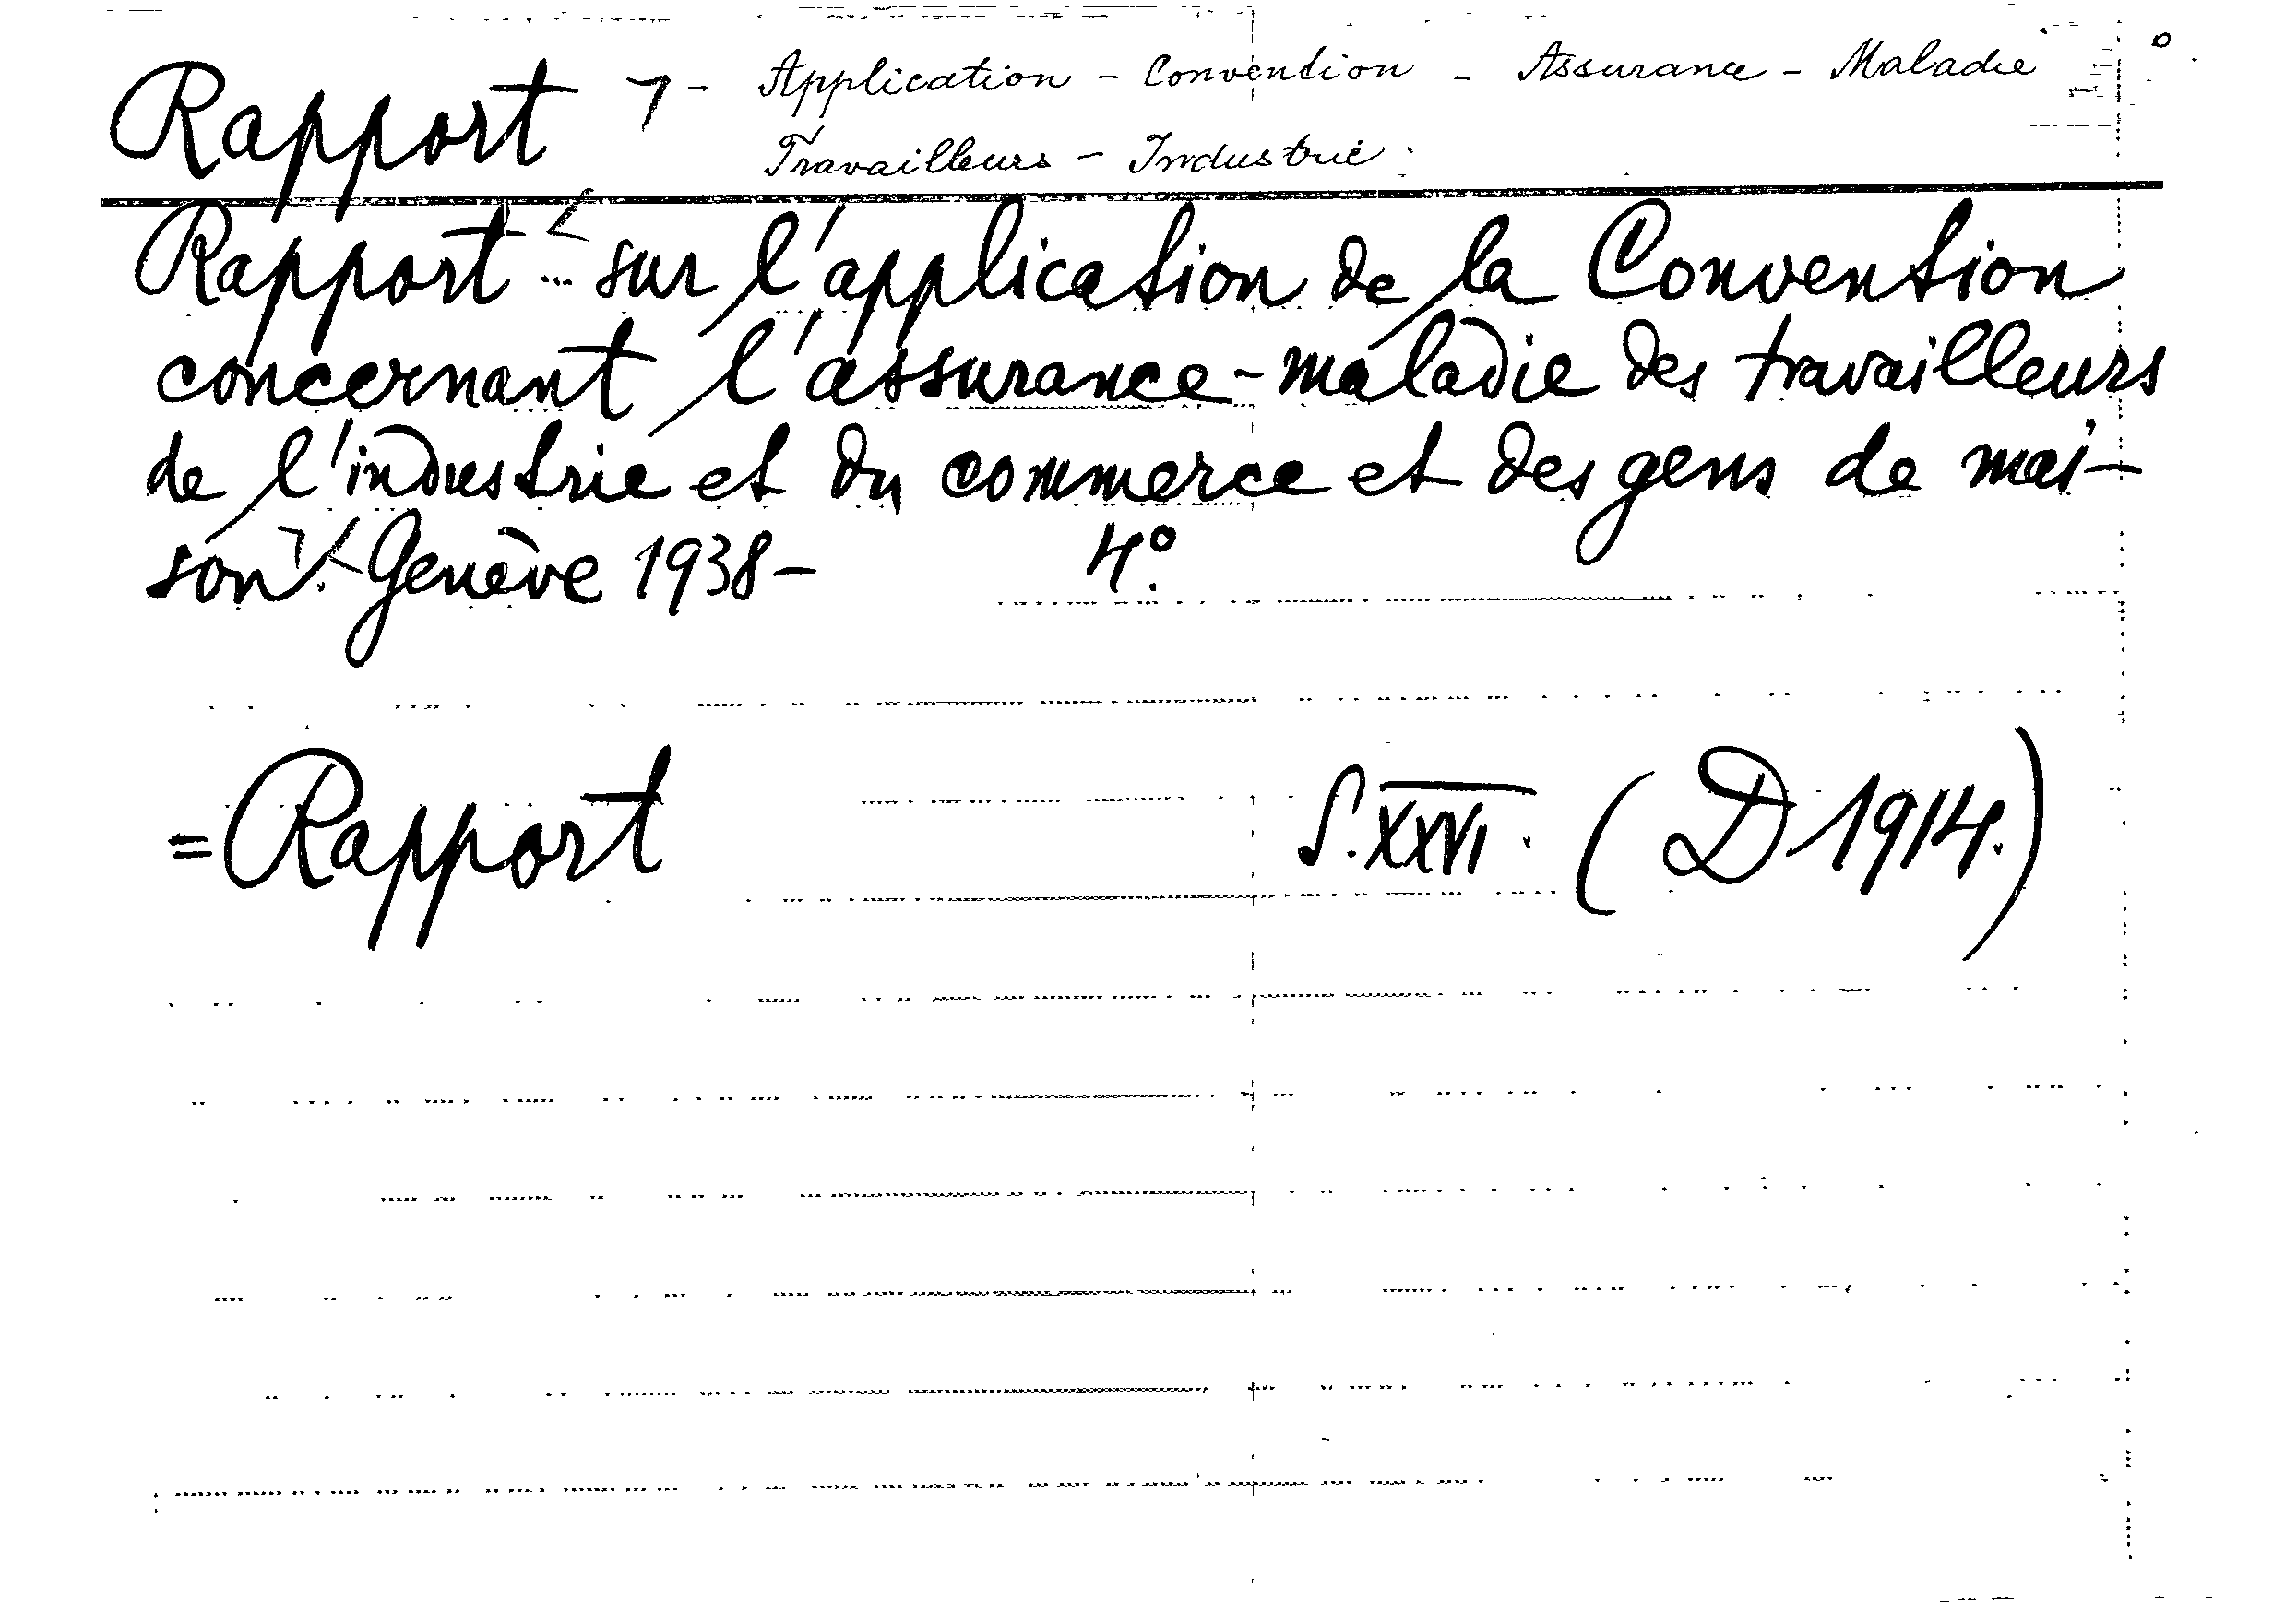 Rapport - Application - Convention - Assurance - Maladie
Travailleurs - Industrie
Rapport ... sur l'application de la Convention
concernant l'assurance-maladie des travailleurs
de l'industrie et du commerce et des gens de mai-
son. Genève 1938 - 4°.
=Rapport S.XXVI. (D 1914.)